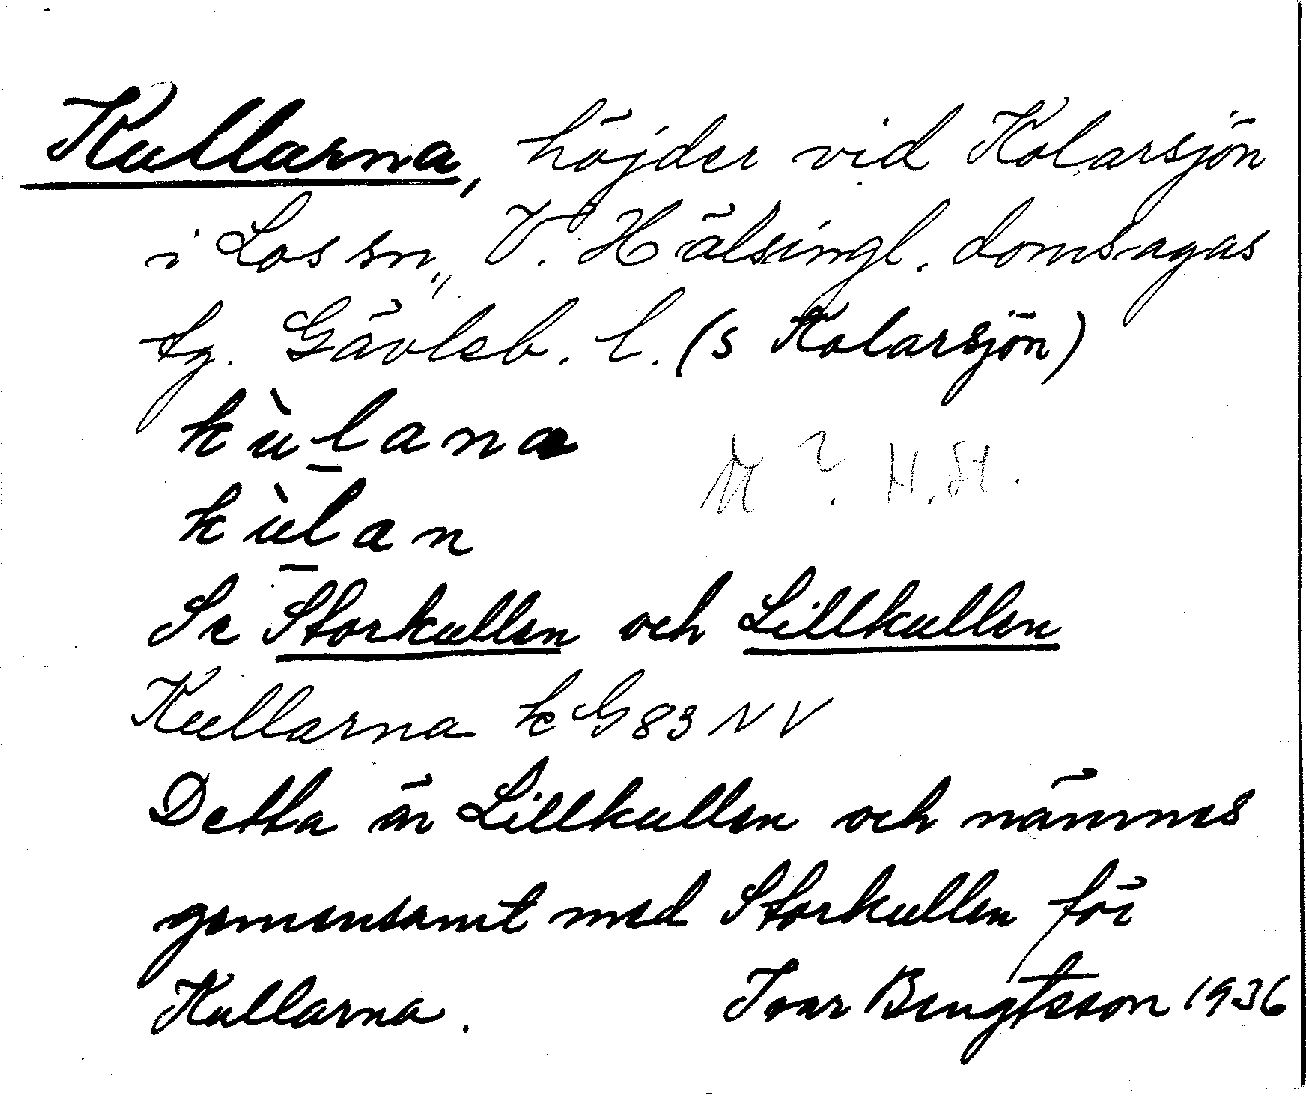 Kullarna, höjder vid Kolarsjön
i Los sn, V. Hälsingl. domsagas
tg. Gävleb. l. (s Kolarsjön)
kùlana
M ? H. St.
kùlan
Se Storkullen och Lillkullen
Kullarna k G 83 NV
Detta är Lillkullen och nämnes
gemensamt med Storkullen för
Kullarna. Ivar Bengtsson 1936